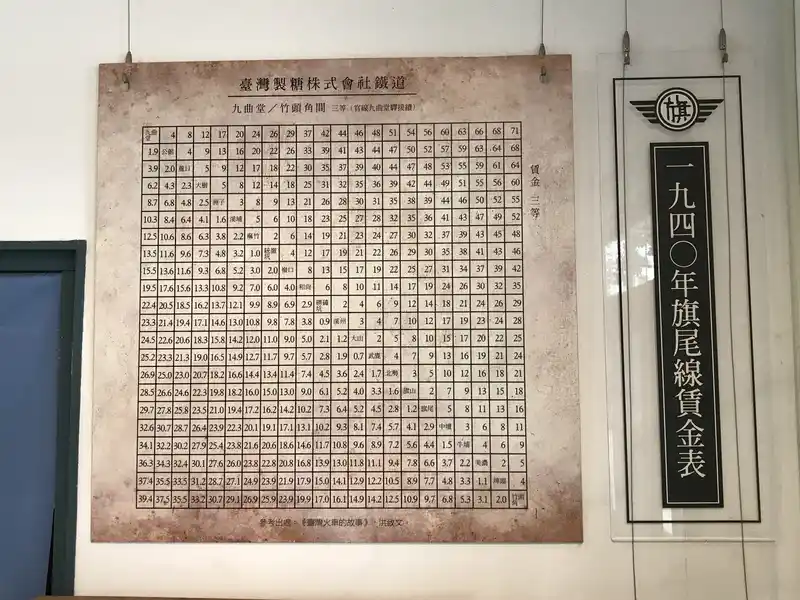 臺灣製糖株式會社鐵道
九曲堂／竹頭角間 三等（官線九曲堂驛接續）
九曲堂 4 8 12 17 20 24 26 29 37 42 44 46 48 51 54 56 60 63 66 68 71
1.9 公館 4 9 13 16 20 22 26 33 39 41 43 44 47 50 52 57 59 63 64 68
3.9 2.0 5 9 12 17 18 22 30 35 37 39 40 44 47 48 53 55 59 61 64
6.2 4.3 2.3 大樹 5 8 12 14 18 25 31 32 35 36 39 42 44 49 51 55 56 60
8.7 6.8 4.8 2.5 3 8 9 13 21 26 28 30 31 35 38 39 44 46 50 52 55
10.3 8.4 6.4 4.1 1.6 溪埔 5 6 10 18 23 25 27 28 32 35 36 41 43 47 49 52
12.5 10.6 8.6 6.3 3.8 2.2 麻竹 2 6 14 19 21 23 24 27 30 32 37 39 43 45 48
13.5 11.6 9.6 7.3 4.8 3.2 1.0 4 12 17 19 21 22 26 29 30 35 38 41 43 46
15.5 13.6 11.6 9.3 6.8 5.2 3.0 2.0 嶺口 8 13 15 17 19 22 25 27 31 34 37 39 42
19.5 17.6 15.6 13.3 10.8 9.2 7.0 6.0 4.0 和尚 6 8 10 11 14 17 19 24 26 30 32 35
22.4 20.5 18.5 16.2 13.7 12.1 9.9 8.9 6.9 2.9 2 4 6 9 12 14 18 21 24 26 29
23.3 21.4 19.4 17.1 14.6 13.0 10.8 9.8 7.8 3.8 0.9 溪州 3 4 7 10 12 17 19 23 24 28
24.5 22.6 20.6 18.3 15.8 14.2 12.0 11.0 9.0 5.0 2.1 1.2 大山 2 5 8 10 15 17 20 22 25
25.2 23.3 21.3 19.0 16.5 14.9 12.7 11.7 9.7 5.7 2.8 1.9 0.7 武鹿 4 7 9 13 16 19 21 24
26.9 25.0 23.0 20.7 18.2 16.6 14.4 13.4 11.4 7.4 4.5 3.6 2.4 1.7 北勢 3 5 10 12 16 18 21
28.5 26.6 24.6 22.3 19.8 18.2 16.0 15.0 13.0 9.0 6.1 5.2 4.0 3.3 1.6 旗山 2 7 9 13 15 18
29.7 27.8 25.8 23.5 21.0 19.4 17.2 16.2 14.2 10.2 7.3 6.4 5.2 4.5 2.8 1.2 旗尾 5 8 11 13 16
32.6 30.7 28.7 26.4 23.9 22.3 20.1 19.1 17.1 13.1 10.2 9.3 8.1 7.4 5.7 4.1 2.9 中壇 3 6 8 11
34.1 32.2 30.2 27.9 25.4 23.8 21.6 20.6 18.6 14.6 11.7 10.8 9.6 8.9 7.2 5.6 4.4 1.5 牛埔 4 6 9
36.3 34.3 32.4 30.1 27.6 26.0 23.8 22.8 20.8 16.8 13.9 13.0 11.8 11.1 9.4 7.8 6.6 3.7 2.2 美濃 2 5
37.4 35.5 33.5 31.2 28.7 27.1 24.9 23.9 21.9 17.9 15.0 14.1 12.9 12.2 10.5 8.9 7.7 4.8 3.3 1.1 4
39.4 37.5 35.5 33.2 30.7 29.1 26.9 25.9 23.9 19.9 17.0 16.1 14.9 14.2 12.5 10.9 9.7 6.8 5.3 3.1 2.0 竹頭角
賃金 三等
參考出處：《臺灣火車的故事》，洪致文。
旗
一九四〇年旗尾線賃金表